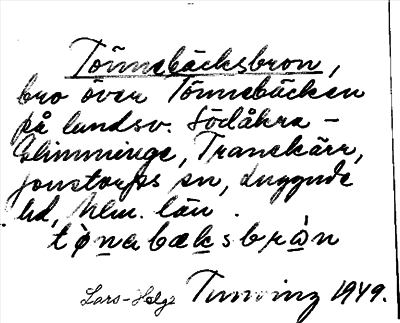 Tönnebäcksbron,
bro över Tönnebäcken
på landsv. Södåkra -
Glimminge, Tranekärr,
Jonstorps sn, Luggude
hd, Mlm. län.
tǫ̀nabæksbrὼn
Lars-Helge Tunving 1949.